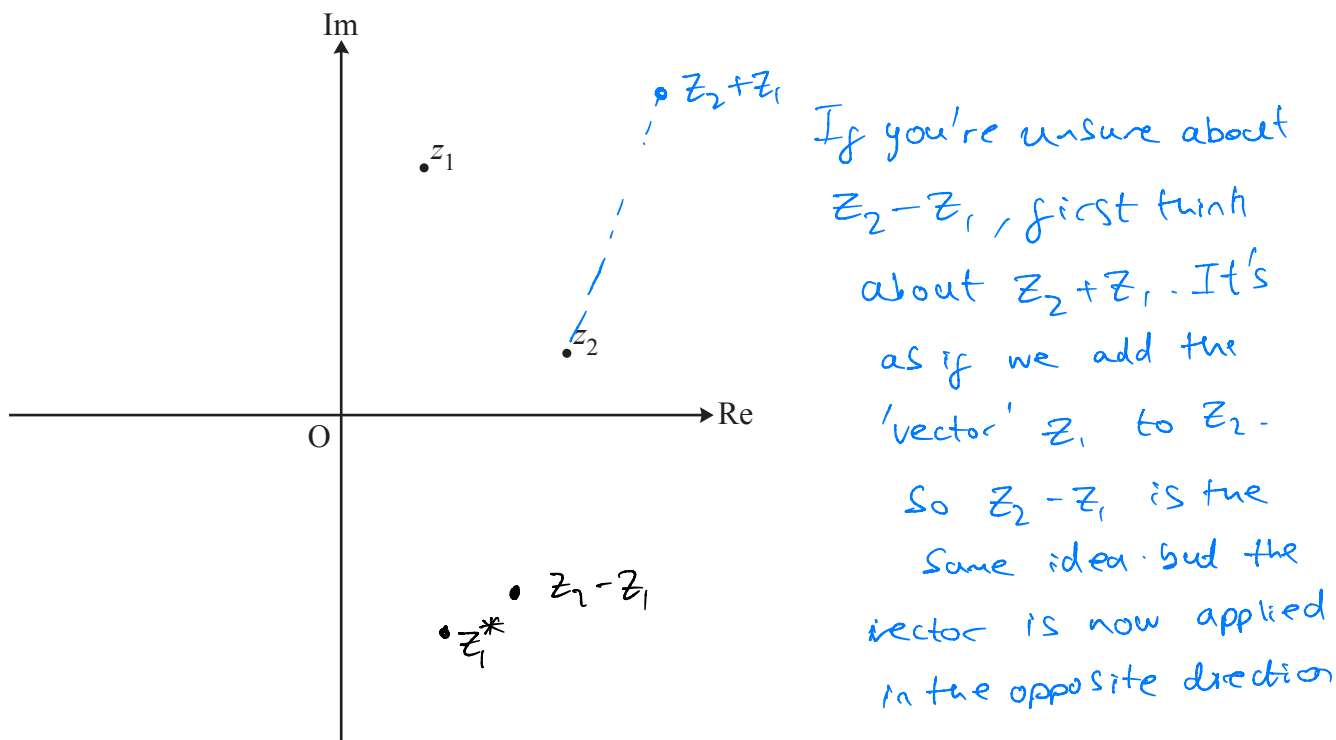 Im
z₂+z₁
z₁
z₂
Re
O
z₂-z₁
z₁*
If you're unsure about
z₂-z₁, first think
about z₂+z₁. It's
as if we add the
'vector' z₁ to z₂.
So z₂-z₁ is the
same idea but the
vector is now applied
in the opposite direction